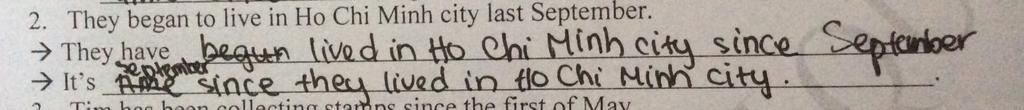 2. They began to live in Ho Chi Minh city last September.
→ They have begun lived in Ho Chi Minh city since September
→ It's September since they lived in Ho Chi Minh city.
3. Tim has been collecting stamps since the first of May